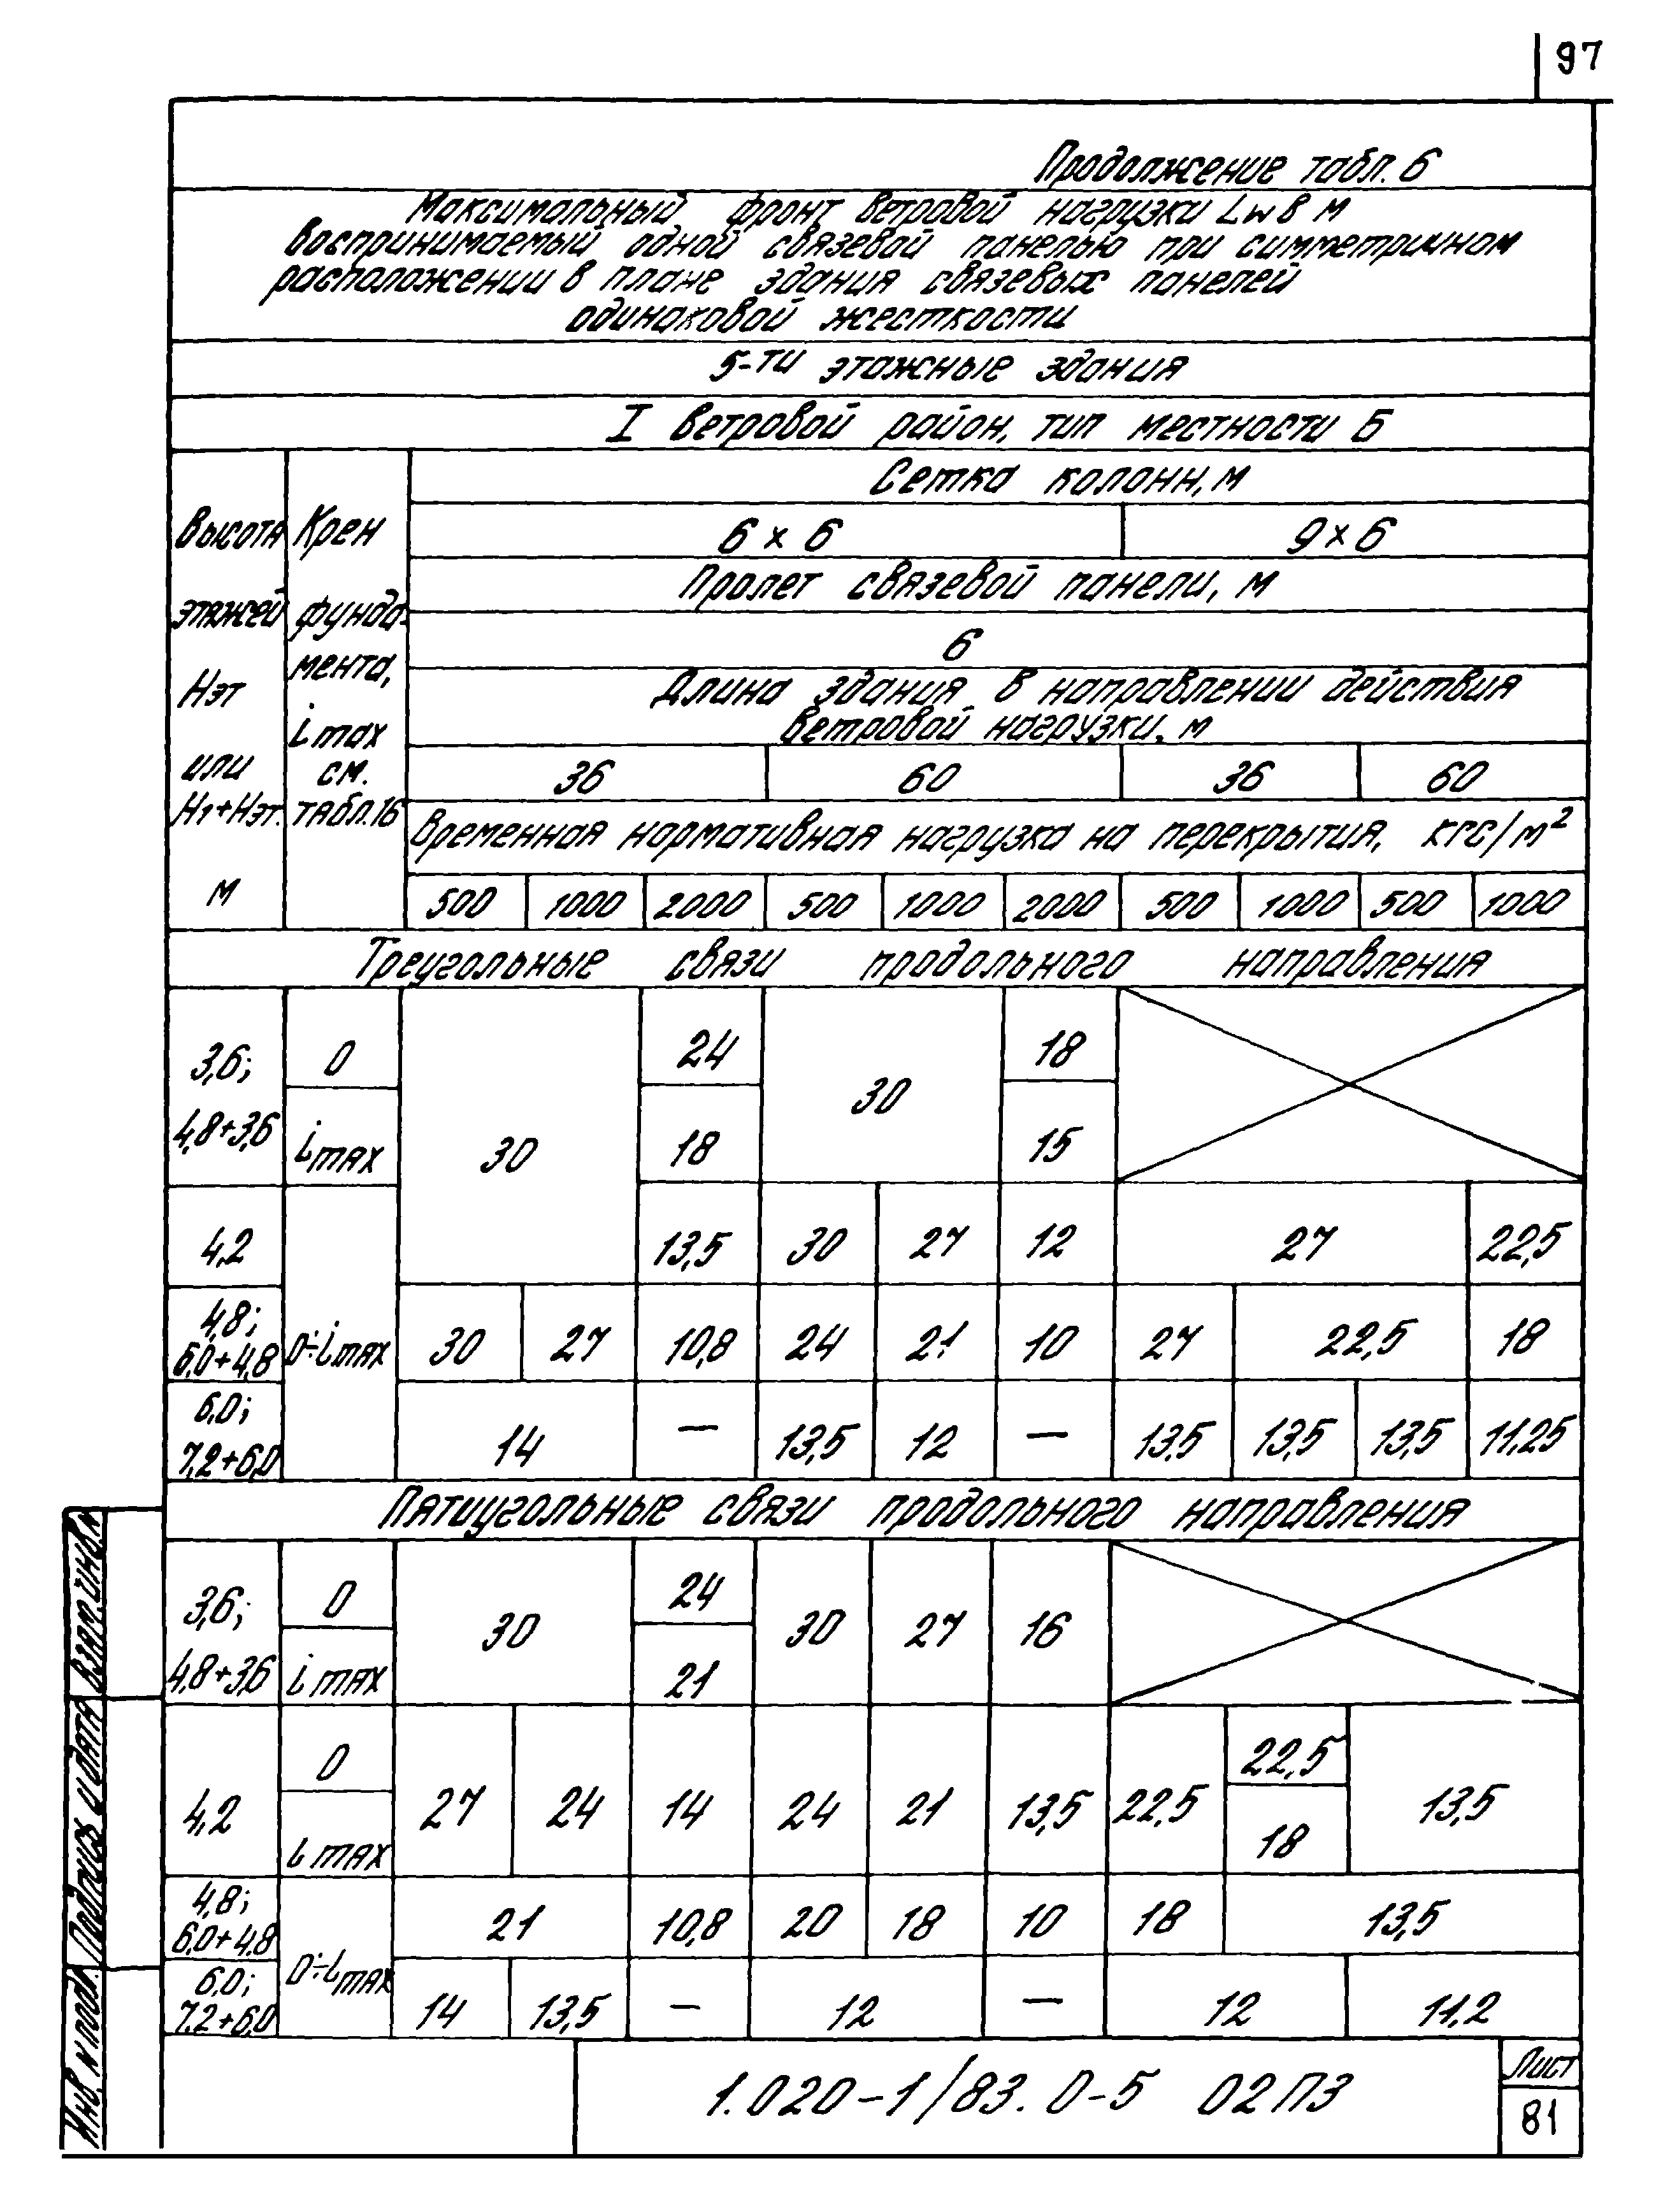 97
Продолжение табл. 6
Максимальный фронт ветровой нагрузки Lw в м
воспринимаемый одной связевой панелью при симметричном
расположении в плане здания связевых панелей
одинаковой жесткости
5-ти этажные здания
I ветровой район, тип местности Б
Высота
этажей
Нэт
или
Н1+Нэт.
м
Крен
фунда-
мента,
imax
см.
табл.16
Сетка колонн, м
6 x 6 9 x 6
Пролет связевой панели, м
6
Длина здания в направлении действия
ветровой нагрузки, м
36 60 36 60
Временная нормативная нагрузка на перекрытия, кгс/м²
500 1000 2000 500 1000 2000 500 1000 500 1000
Треугольные связи продольного направления
3,6; 0 24 18
30
4,8+3,6 imax 30 18 15
4,2 13,5 30 27 12 27 22,5
4,8;
6,0+4,8 0÷imax 30 27 10,8 24 21 10 27 22,5 18
6,0;
7,2+6,0 14 — 13,5 12 — 13,5 13,5 13,5 11,25
Пятиугольные связи продольного направления
3,6; 0 24
30 30 27 16
4,8+3,6 imax 21
0 22,5
4,2 27 24 14 24 21 13,5 22,5 13,5
imax 18
4,8;
6,0+4,8 21 10,8 20 18 10 18 13,5
0÷imax
6,0;
7,2+6,0 14 13,5 — 12 — 12 11,2
Взам. инв. N
Подпись и дата
Инв. N подл.
1.020-1/83. 0-5 02ПЗ
Лист
81